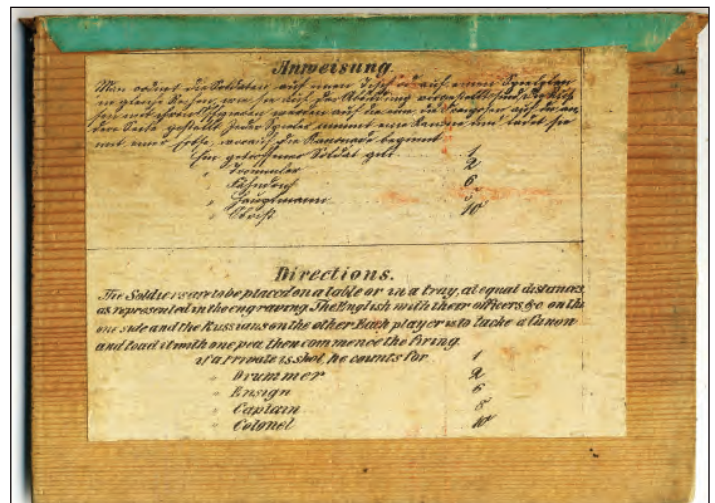 Anweisung.
Man ordnet die Soldaten auf einen Tisch od auf einen
in gleiche Reihen, wie sie auf der Abbildung sind,
mit ihren werden auf die eine, die auf die an-
dere Seite gestellt Jeder Spieler nimmt eine Kanone und ladet sie
mit einer Erbse, worauf die Kanonade beginnt.
Ein getroffener Soldat gilt 1
" Trommler 2
" Fähndrich 6
" Hauptmann
" Obrist 10
Directions.
The Soldiers are to be placed on a table or in a tray, at equal distances,
as represented in the engraving. The English with their officers, &c. on the
one side and the Russians on the other. Each player is to tacke a Canon
and load it with one pea, then commence the firing.
if a Private is shot, he counts for 1
" Drummer 2
" Ensign 6
" Captain 8
" Colonel 10